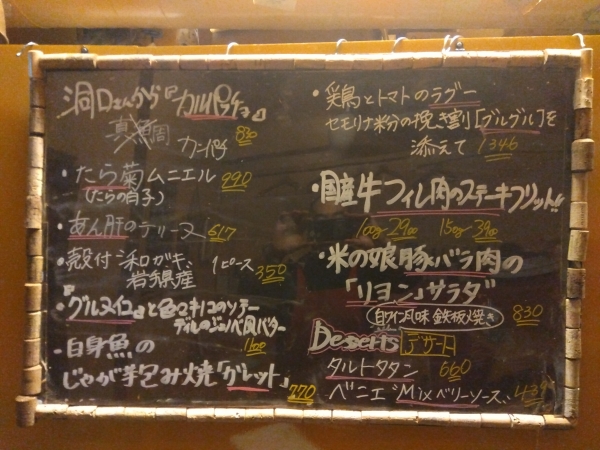 洞口さんから『カルパッチョ』
真鯛 830
カンパチ
・たら菊ムニエル 990
(たらの白子)
・あん肝のテリーヌ 617
・殻付 浜口ガキ、
岩手県産 1ピース 350
・グルヌイユと色マキノコのソテー
バター
・白身魚の
じゃが芋包み焼「ガレット」 770
・鶏とトマトのラグー
セモリナ粉分の挽き割「グルグル」を
添えて 1346
・国産牛フィレ肉のステーキフリット!!
100g 2900 150g 3900
・米の娘豚バラ肉の
「リヨン」サラダ
白ワイン風味 鉄板焼き 830
Desserts デザート
タルトタタン 660
ベニエ "Mixベリーソース" 439